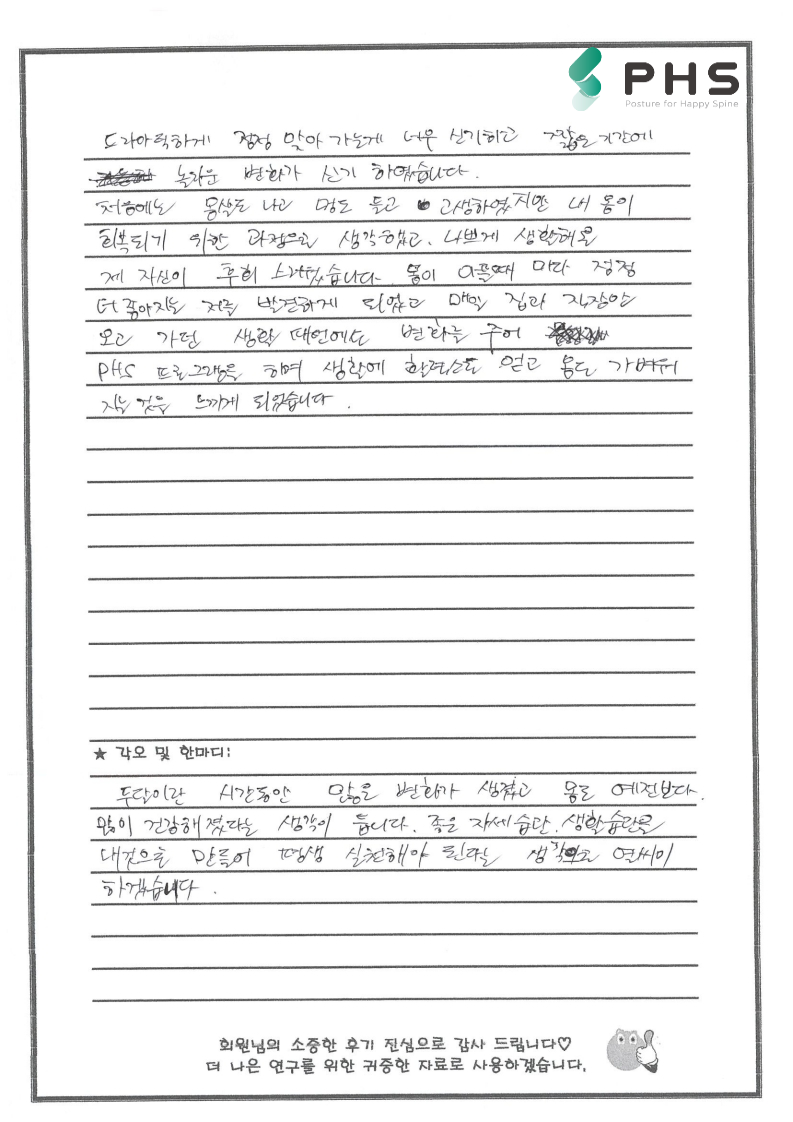 PHS
Posture for Happy Spine
드라마틱하게 점점 맞아 가는게 너무 신기하고 짧은 기간에
놀라운 변화가 신기 하였습니다.
처음에는 몸살도 나고 멍도 들고 고생하였지만 내 몸이
회복되기 위한 과정으로 생각했고, 나쁘게 생활해온
제 자신이 후회 스러웠습니다 몸이 아플때 마다 점점
더 좋아지는 저를 발견하게 되었고 매일 집과 직장만
오고 가던 생활 패턴에도 변화를 주어
PHS 프로그램을 하며 생활에 활력소도 얻고 몸도 가벼워
지는 것을 느끼게 되었습니다.
★ 각오 및 한마디:
두달이란 시간동안 많은 변화가 생겼고 몸도 예전보다.
많이 건강해 졌다는 생각이 듭니다. 좋은 자세습관, 생활습관을
내것으로 만들어 평생 실천해야 된다는 생각으로 열씨미
하겠습니다.
회원님의 소중한 후기 진심으로 감사 드립니다♡
더 나은 연구를 위한 귀중한 자료로 사용하겠습니다.